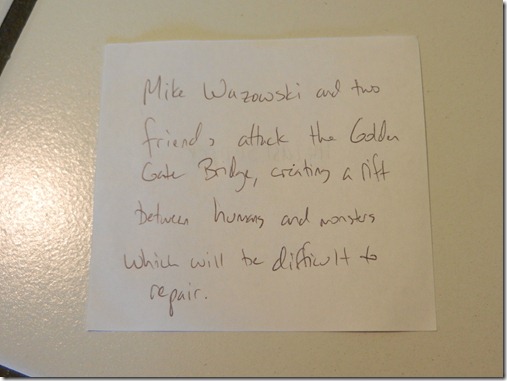 Mike Wazowski and two
friends attack the Golden
Gate Bridge, creating a rift
between humans and monsters
which will be difficult to
repair.